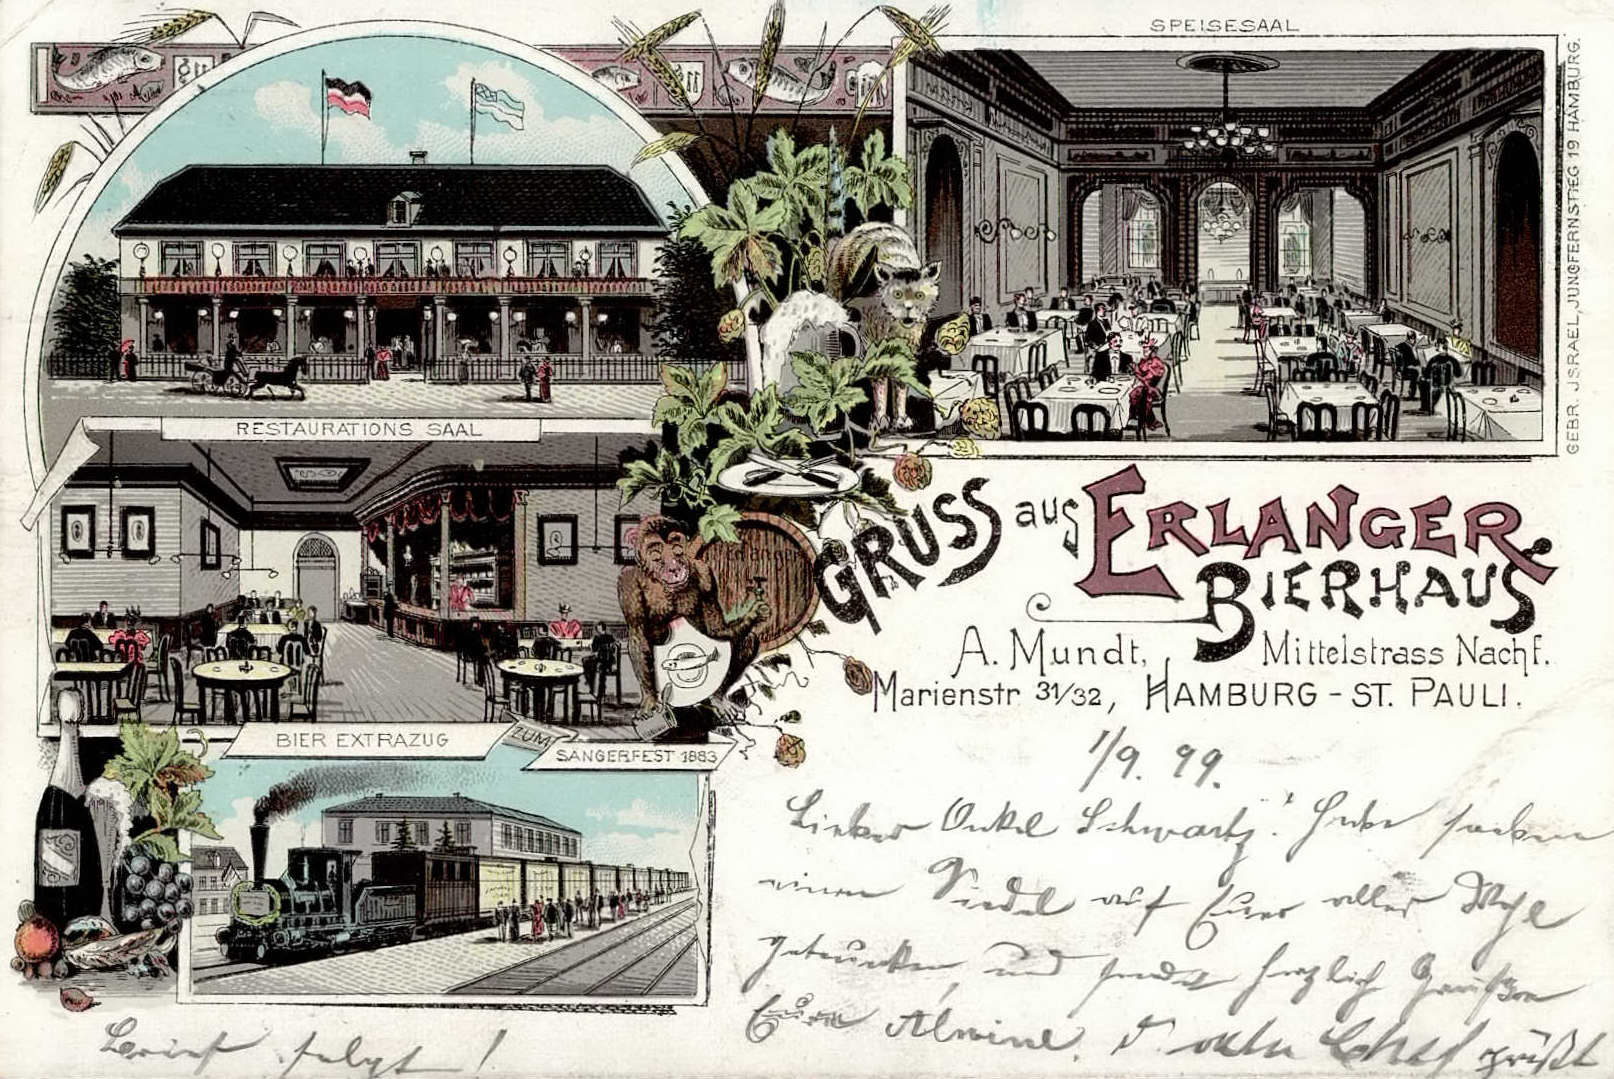 SPEISESAAL
GEBR. JSRAEL, JUNGFERNSTIEG 19 HAMBURG.
RESTAURATIONS SAAL
Erlanger
GRUSS aus ERLANGER
BIERHAUS
A. Mundt, Mittelstrass Nachf.
Marienstr 31/32, HAMBURG - ST. PAULI.
BIER EXTRAZUG ZUM SÄNGERFEST 1883
1/9. 99.
Lieber Onkel Schwartz! Habe soeben
einen Seidel auf Euer aller Wohl
getrunken, und sendet herzlich Grüße
Eure Alwine.
grüßt
Brief folgt!